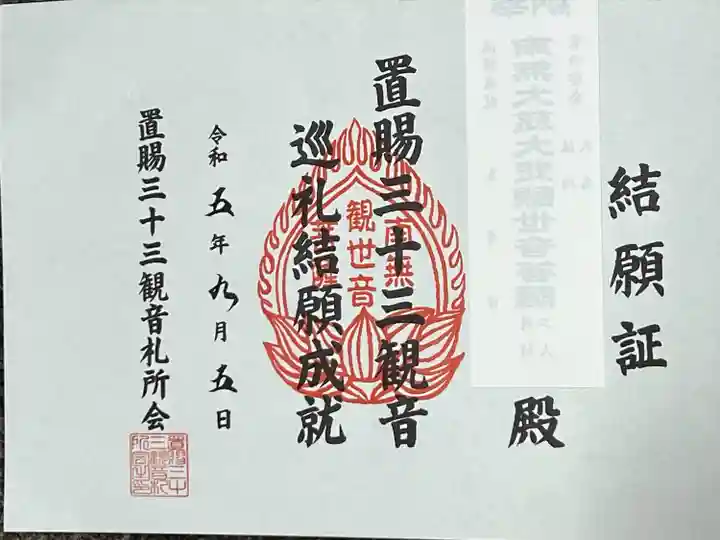 結願証
殿
南無大慈大悲観世音菩薩
置賜三十三観音
巡礼結願成就
南無
観世音
菩薩
令和五年九月五日
置賜三十三観音札所会